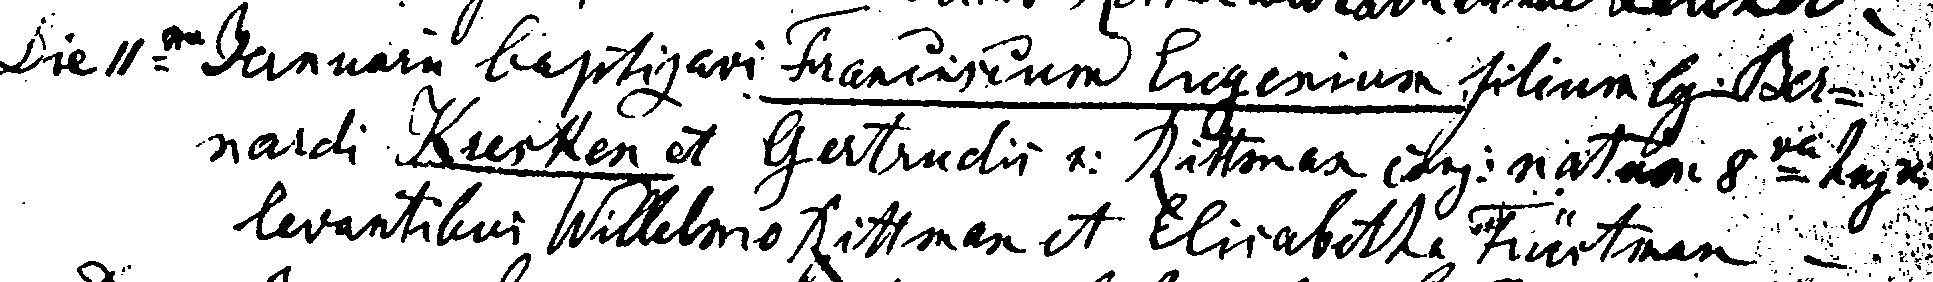 Die 11ma Januarii baptizavi Franciscum Eugenium filium lg: Ber=
nardi Kresken et Gertrudis n: Rittman conj: natum 8va hujus
levantibus Willelmo Rittman et Elisabetha Früstman